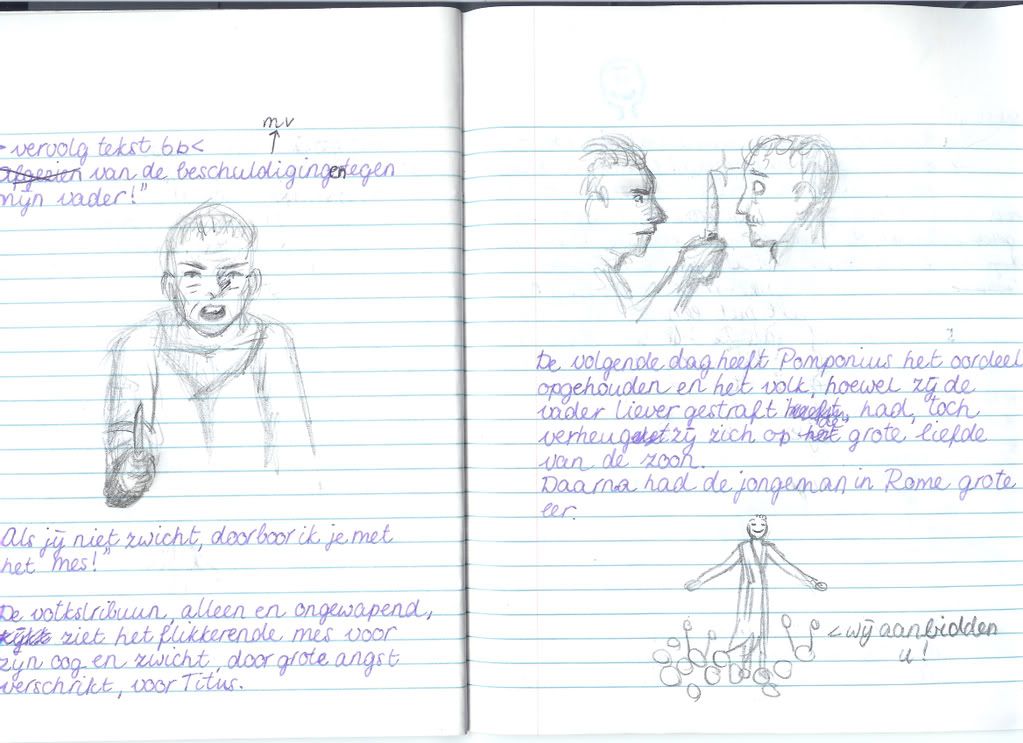 mv
> vervolg tekst 6b<
afgezien van de beschuldigingen tegen
mijn vader!"
Als jij niet zwicht, doorboor ik je met
het mes!"
De volkstribuun, alleen en ongewapend,
ziet het flikkerende mes voor
zijn oog en zwicht, door grote angst
verschrikt, voor Titus.
De volgende dag heeft Pomponius het oordeel
opgehouden en het volk, hoewel zij de
vader liever gestraft had, toch
zij zich op de grote liefde
van de zoon.
Daarna had de jongeman in Rome grote
eer.
< wij aanbidden
u!